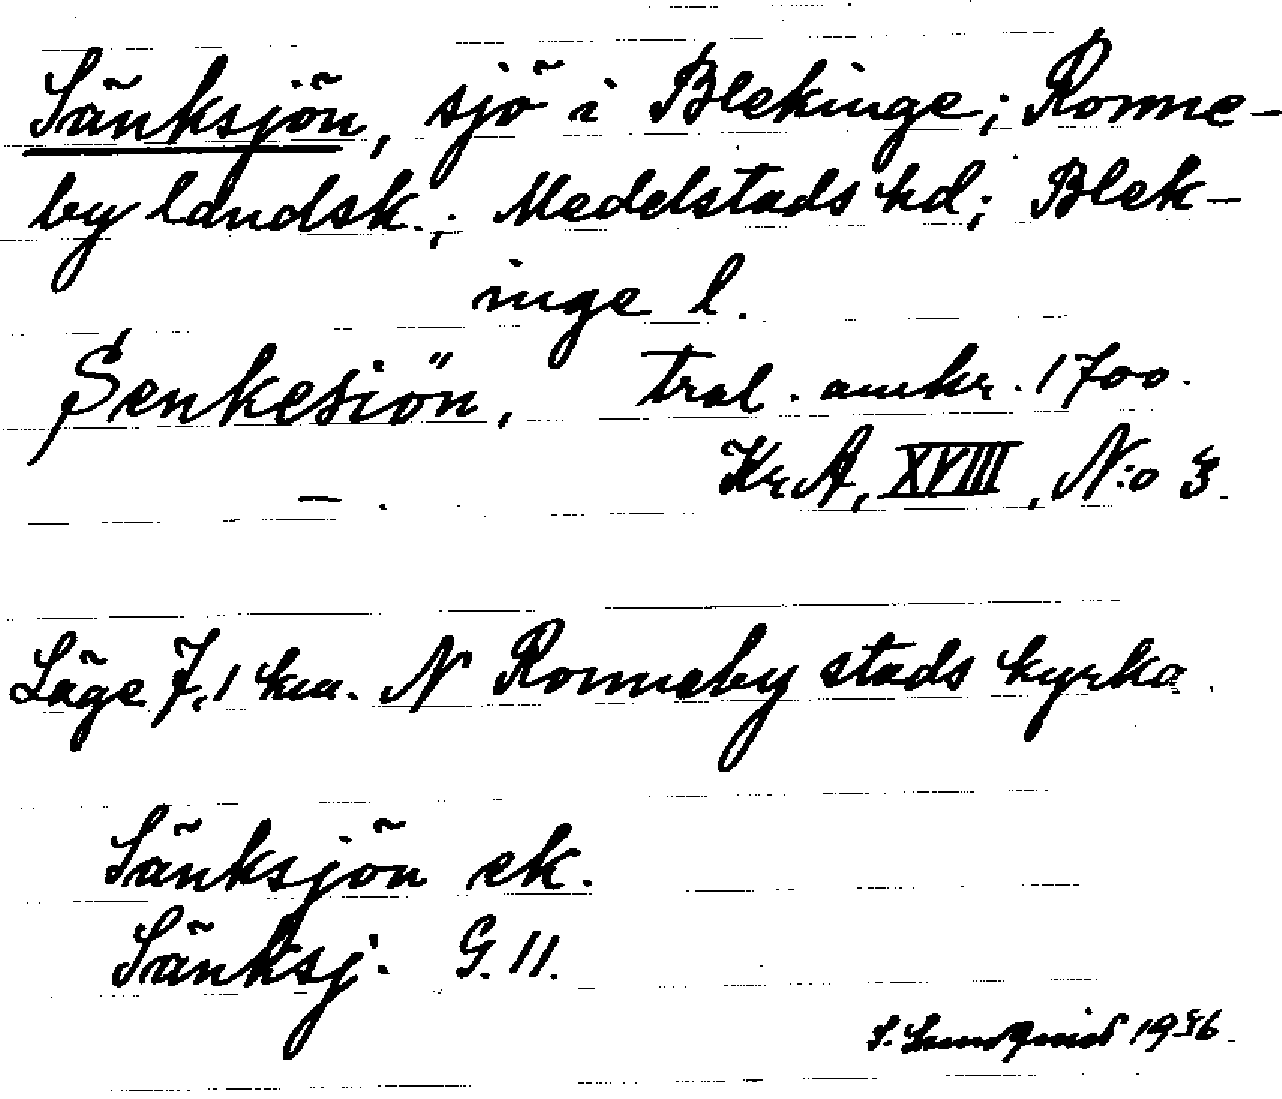 Sänksjön, sjö i Blekinge; Ronne-
by landsk.; Medelstads hd; Blek-
inge l.
Senkesiön, tral. omkr. 1700.
KrA, XVIII, N:o 3.
— .
Läge 7,1 km. N Ronneby stads kyrka.
Sänksjön ek.
Sänksj. G. 11.
S. Lundquist 1956.